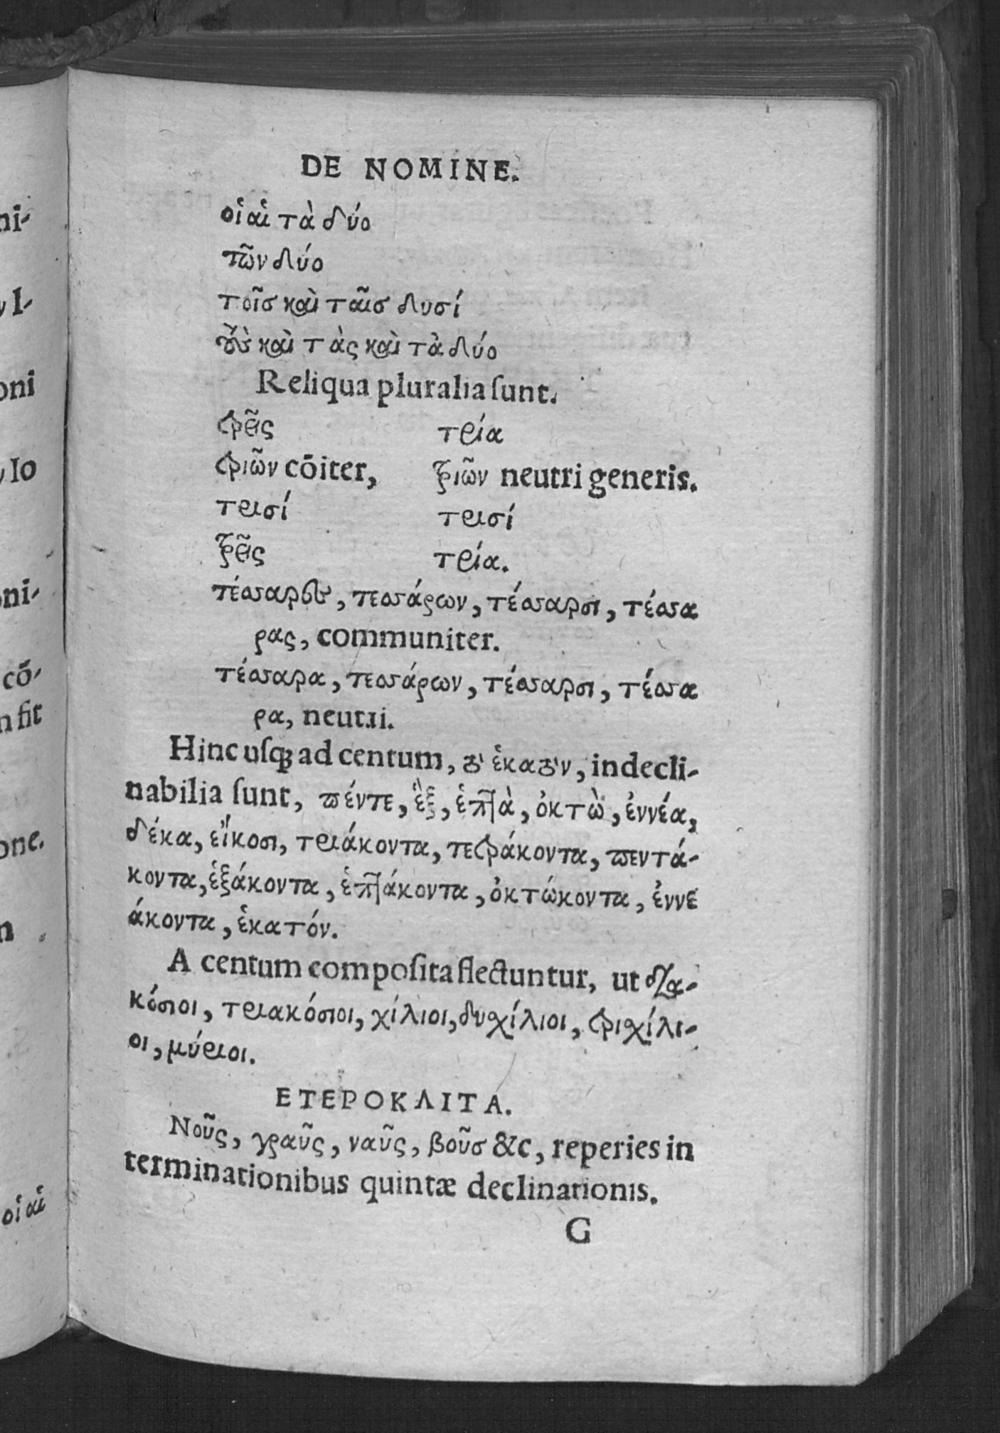 DE NOMINE.
οἱ αἱ τὰ δύο
τῶν δύο
τοῖσ καὶ ταῖσ δυσί
τοὺς καὶ τὰς καὶ τὰ δύο
Reliqua pluralia sunt.
τρεῖς τρία
τριῶν cōiter, τριῶν neutri generis.
τρισί τρισί
τρεῖς τρία.
τέσσαρες, τεσσάρων, τέσσαρσι, τέσσα
ρας, communiter.
τέσσαρα, τεσσάρων, τέσσαρσι, τέσσα
ρα, neutri.
Hinc usq; ad centum, τὸ ἑκατὸν, indecli-
nabilia sunt, πέντε, ἓξ, ἑπτὰ, ὀκτὼ, ἐννέα,
δέκα, εἴκοσι, τριάκοντα, τετράκοντα, πεντά-
κοντα, ἑξάκοντα, ἑπτάκοντα, ὀκτώκοντα, ἐννε
άκοντα, ἑκατόν.
A centum composita flectuntur, ut δια-
κόσιοι, τριακόσιοι, χίλιοι, δυχίλιοι, τριχίλι-
οι, μύριοι.
ΕΤΕΡΟΚΛΙΤΑ.
Νοῦς, γραῦς, ναῦς, βοῦσ &c, reperies in
terminationibus quintæ declinationis.
G
ni-
I-
oni
Io
oni-
cō-
n fit
one.
οἱ αἱ